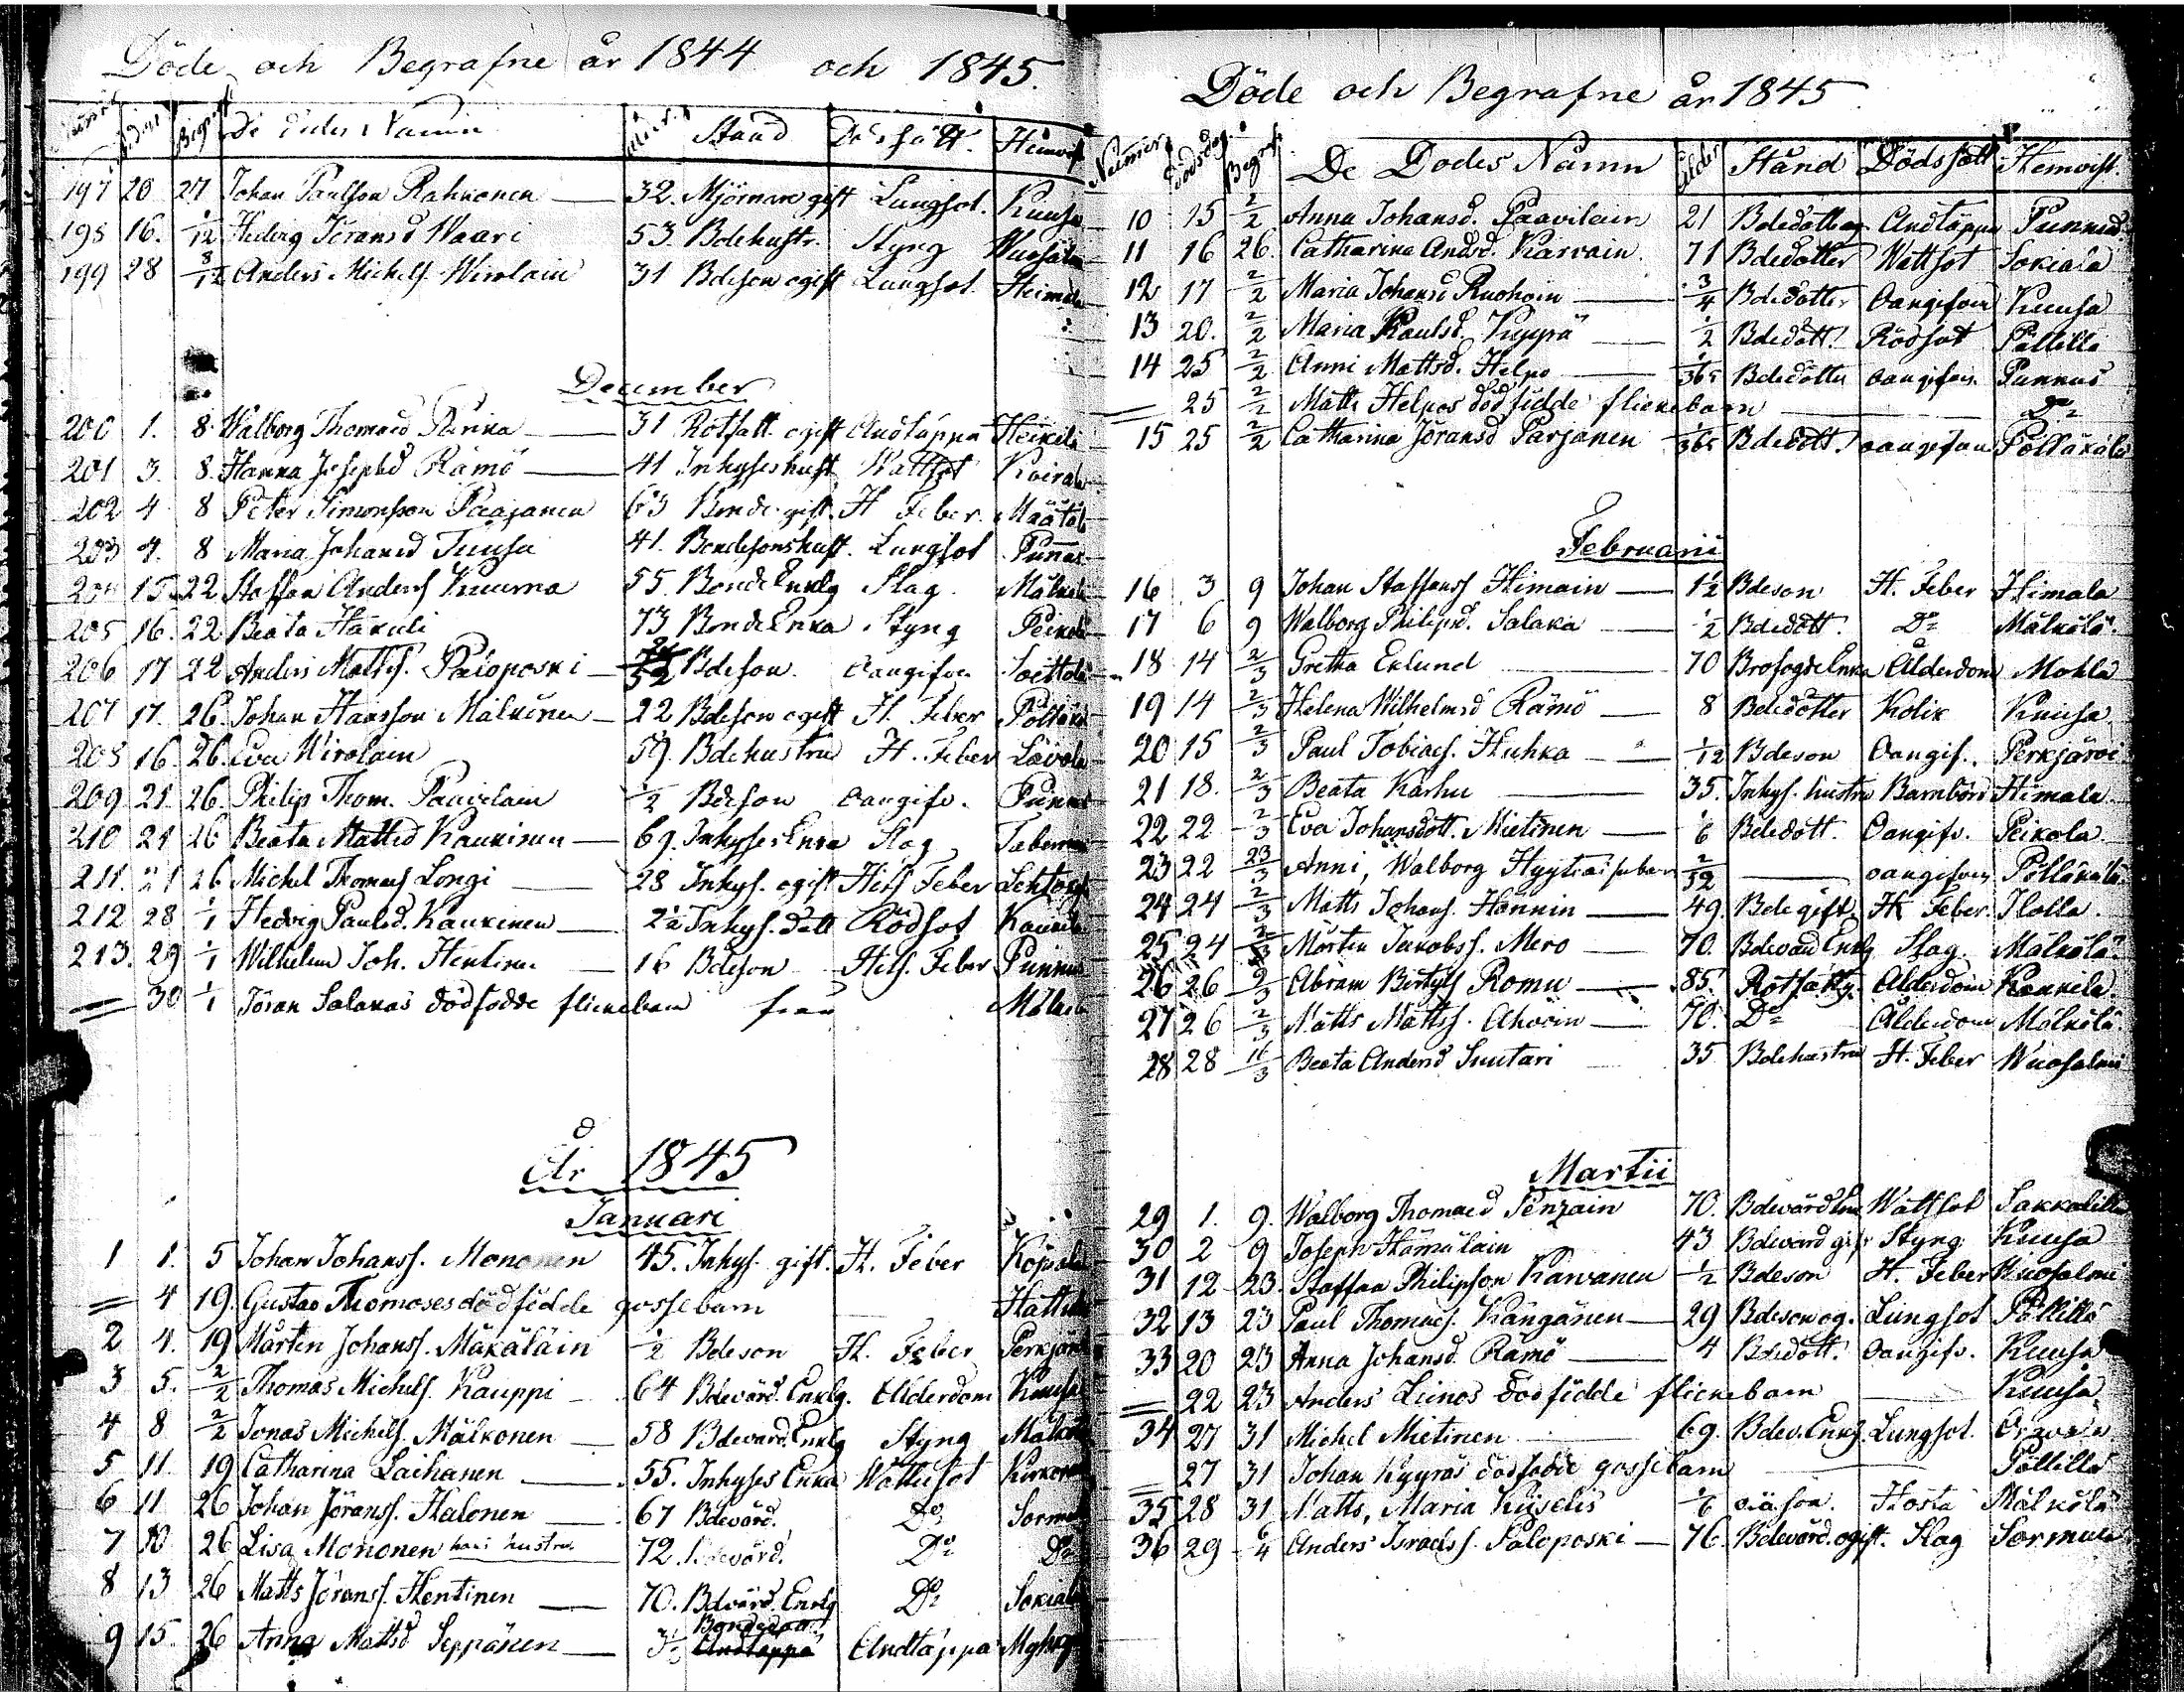 Döde och Begrafne år 1844 och 1845.
De dödes Namn Stånd Dödssätt. Hemvist
197 20 27 Johan Paulsson Rahkonen 32. gift Lungsot. Kuusa
198 16. 1/12 Hedvig Göransd Waari 53. Bdehustr. Styng Wuosalmi
199 28 8/12 Anders Michels. Wirolain 31 Bdeson ogift Lungsot
December
200 1. 8. Walborg Thomasd 31 ogift Andtäppa Heikkilä
201 3. 8. Hanna Josephsd Rämö 41 Inhyseshust Wattsot
202 4 8 Peter Simonsson Paajanen 63 Bonde gift. H Feber.
203 4. 8 Maria Johansd Tuusa 41. Bondesonshust. Lungsot
204 15 22 Staffan Anders Kuurna 55. Bonde Enklg Slag.
205 16. 22 Beata Häkuli 73 Bonde Enka Styng
206 17 22 Anders Matts. Paloposki Bdeson. Oangifven
207 17. 26. Johan Hansson Mälkönen 22 Bdeson ogift H. Feber
208 16. 26. Eva Wirolain 59. Bdehustru H. Feber
209 21. 26. Philip Thom. Paavilain 1/2 Bdeson Oangifv.
210 21 26 Beata Mattsd Kaukinen 69. Inhyses Enka Slag
211. 21 26 Michel Thomas Longi 28 Inhys. ogift Hets Feber
212 28 1/1 Hedvig Paulsd. Kaukinen 2 1/2 Inhys. dott Rödsot
213. 29 1/1 Wilhelm Joh. Hentinen 16 Bdeson Hets. Feber Punnus
= 30 1/1 Jöran Salakas dödfödde flickebarn
År 1845
Januari
1 1. 5 Johan Johanss. Mononen 45. Inhys. gift. H. Feber
= 4 19. Gustav Thomases dödfödde gossebarn
2 4. 19 Mårten Johanss. Mäkäläin 1/2 Bdeson H. Feber
3 5. 2/2 Thomas Michels. Kauppi 64 Bdevärd. Enklg. Ålderdom Kuusa
4 8 2/2 Jonas Michels. Mälkönen 58 Bdevärd. Enklg Styng
5 11. 19 Catharina Laihanen 55. Inhyses Enka Wattusot
6 11 26 Johan Jöranss. Halonen 67 Bdevärd. Do
7 10 26 Lisa Mononen hans hustru 72. Bdevärd. Do Do
8 13 26 Matts Jöranss. Hentinen 70. Bdvärd. Enklg Do
9 15. 26 Anna Mattsd Seppänen Andtäppa
Döde och Begrafne år 1845
Numer Dödsdag. Begraf De Dodes Namn Ålder Stånd Dödssätt Hemvist.
10 15 2/2 Anna Johansd. Paavilain 21 Bdedotter og Andtäppa Punnus
11 16 26. Catharina Andsd. Karvain. 71 Bdedotter Wattsot Sokiala
12 17 2/2 Maria Johansd Ruohoin 3/4 Bdedotter Oangifven Kuusa
13 20. 2/2 Maria Paulsd. Kyyrä 1/2 Bdedott. Rödsot Pällilä
14 25 2/2 Anni Mattsd. Helpo 1/365 Bdedotter oangifven. Punnus
= 25 2/2 Matts Helpos dödfödde flickebarn Do
15 25 2/2 Catharina Jöransd Parjanen 1/365 Bdedott. oangifven Pölläkälä
Februarii
16 3 9 Johan Staffanss Himain 1 1/2 Bdeson H. Feber Himala
17 6 9 Walborg Philipsd. Salaka 1/2 Bdedott. Do Mälkölä.
18 14 2/3 Gretha Eklund 70 Brofogde Enka Ålderdom Mohla
19 14 2/3 Helena Wilhelmsd Rämö 8 Bdedotter Kolik Kuusa
20 15 2/3 Paul Tobiass. Huhka 1/12 Bdeson Oangif. Perkjärvi
21 18. 2/3 Beata Karhu 35. Inhys. hustru Barnbörd Himala
22 22 2/3 Eva Johansdott. Mietinen 1/6 Bdedott. Oangifv. Peikola
23 22 23/3 Anni, Walborg 2/52 oangifven Pölläkälä
24 24 2/3 Matts Johanss. Hännin 49. Bde gift H Feber Ilolla.
25 24 2/3 Mårten Jakobss. Mero 70. Bdevärd Enklg Slag Mälkölä.
26 26 9/3 Abram Bertils Romu 85. Ålderdom Kaukila.
27 26 2/3 Matts Mattss. Ahvoin 70. Do Ålderdom Mälkölä.
28 28 16/3 Beata Andersd Suutari 35 Bdehustru H. Feber Wuosalmi
Martii
29 1. 9. Walborg Thomasd Penzain 70. Wattsot
30 2 9 Joseph Hämäläin 43 Bdevärd gift Styng Kuusa
31 12 23. Staffan Philipson Karvanen 1/2 Bdeson H. Feber Wuosalmi
32 13 23 Paul Thomass. Kangänen 29 Bdeson og. Lungsot Pällilä
33 20 23 Anna Johansd. Rämö 4 Bdedott. Oangifv. Kuusa
= 22 23 Anders Liinos dödfödde flickebarn Kuusa
34 27 31 Michel Mietinen 69. Bdev. Enklg. Lungsot.
= 27 31 Johan Kyyräs dödfödde gossebarn Pällilä
35 28 31 Matts, Maria Kiiselis 1/6 oä son. Hosta Mälkölä
36 29 6/4 Anders Israelss. Paloposki 76. Bdevärd. ogift. Slag Sormula